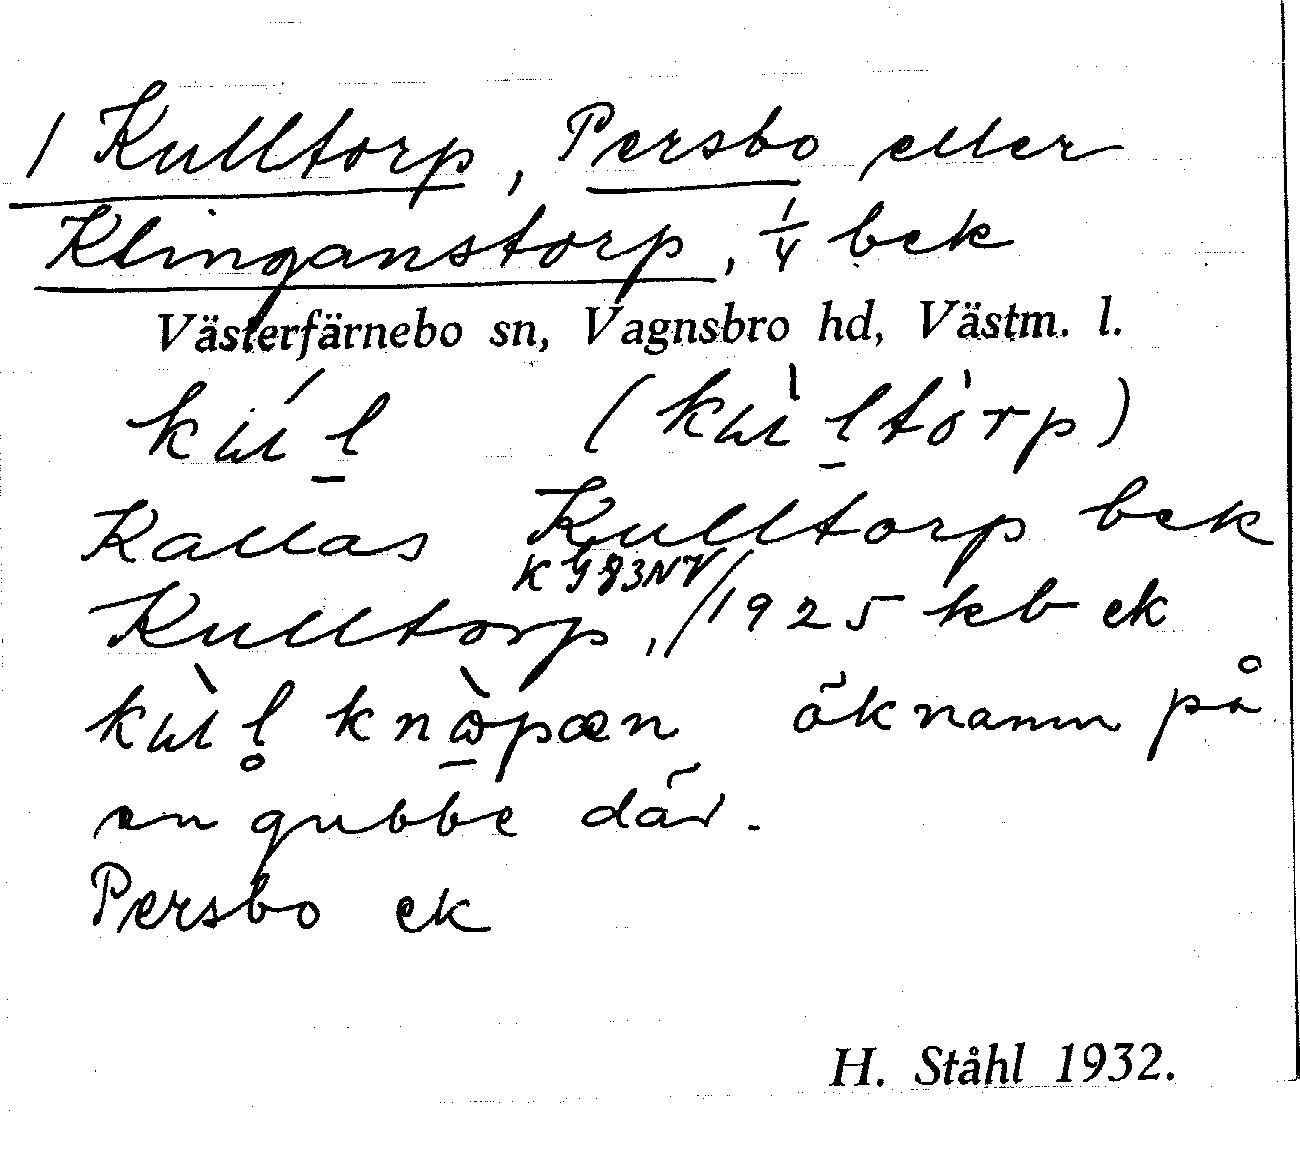 1 Kulltorp, Persbo eller
Klinganstorp, 1/4 bek
Västerfärnebo sn, Vagnsbro hd, Västm. l.
Kallas Kulltorp bek
Kulltorp, /1925 kb ek
öknamn på
en gubbe där.
Persbo ek
H. Ståhl 1932.